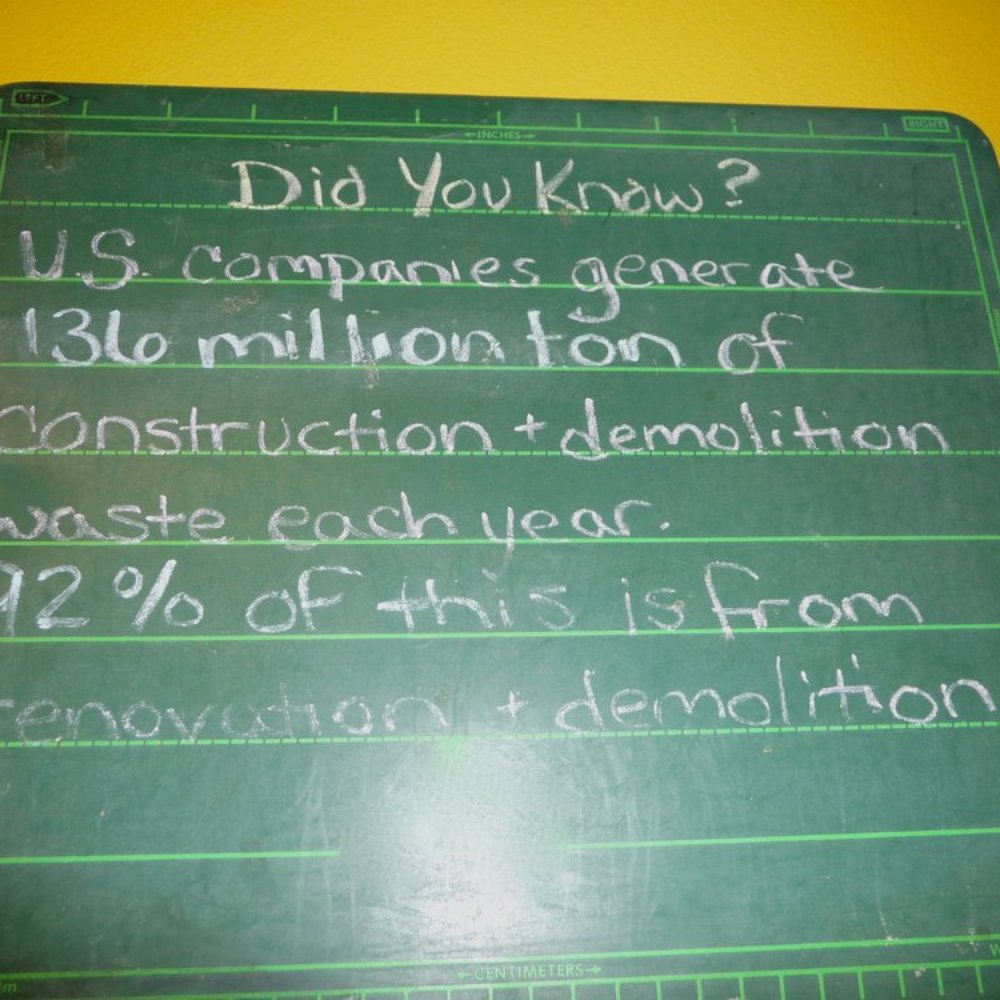 LEFT
RIGHT
INCHES
Did You Know?
U.S. companies generate
136 million ton of
Construction + demolition
waste each year.
92% of this is from
renovation + demolition
CENTIMETERS